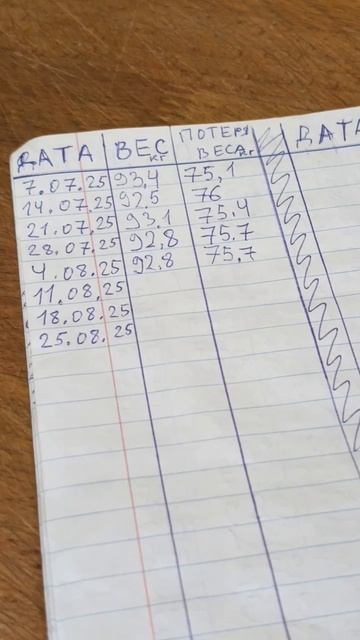 ДАТА ВЕС кг ПОТЕРЯ ВЕСА кг ДАТА
7.07.25 93,4 75,1
14.07.25 92,5 76
21.07.25 93,1 75,4
28.07.25 92,8 75.7
4.08.25 92,8 75,7
11.08.25
18.08.25
25.08.25